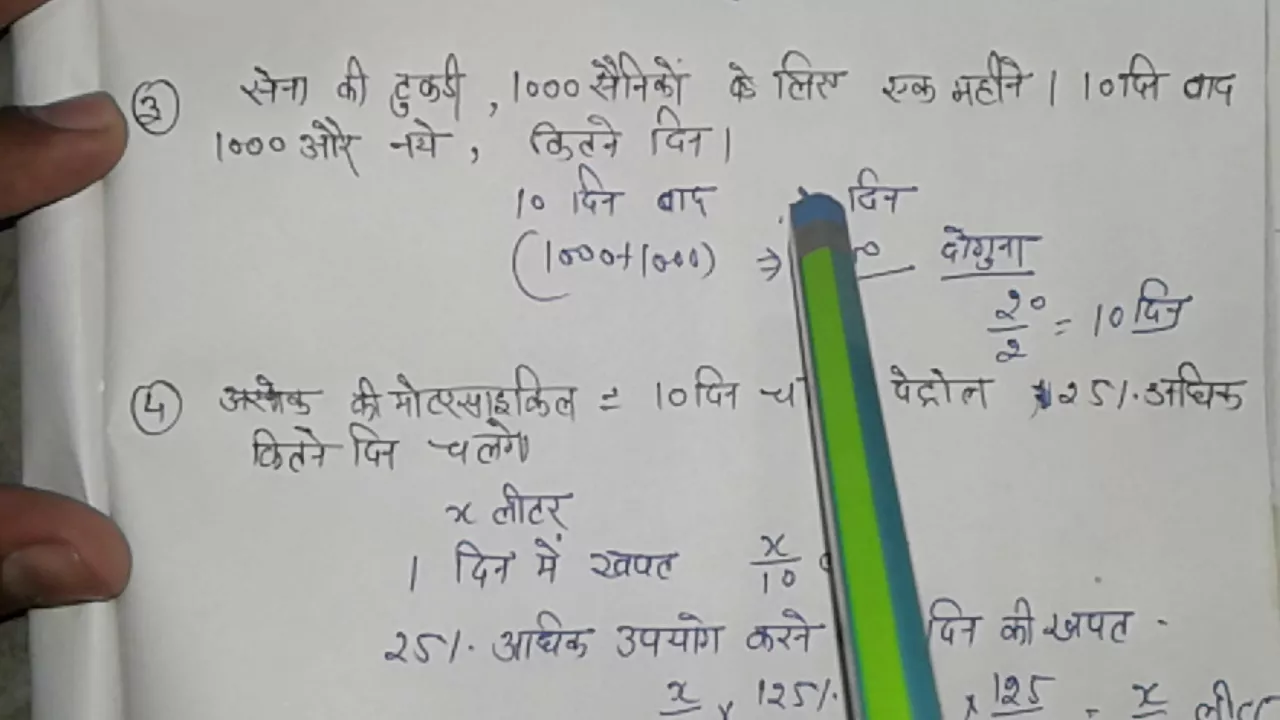 ③ सेना की टुकडी , 1000 सैनिकों के लिए एक महीने । 10 दिन बाद
1000 और नये , कितने दिन ।
10 दिन बाद दिन
(1000+1000) ⇒ दोगुना
२०/२ = 10 दिन
④ की मोटरसाइकिल = 10 दिन पेट्रोल २5%. अधिक
कितने दिन चलेगी
x लीटर
1 दिन में खपत x/10
२5%. अधिक उपयोग करने दिन की खपत -
x × 1२5%. × 1२5 = x लीटर